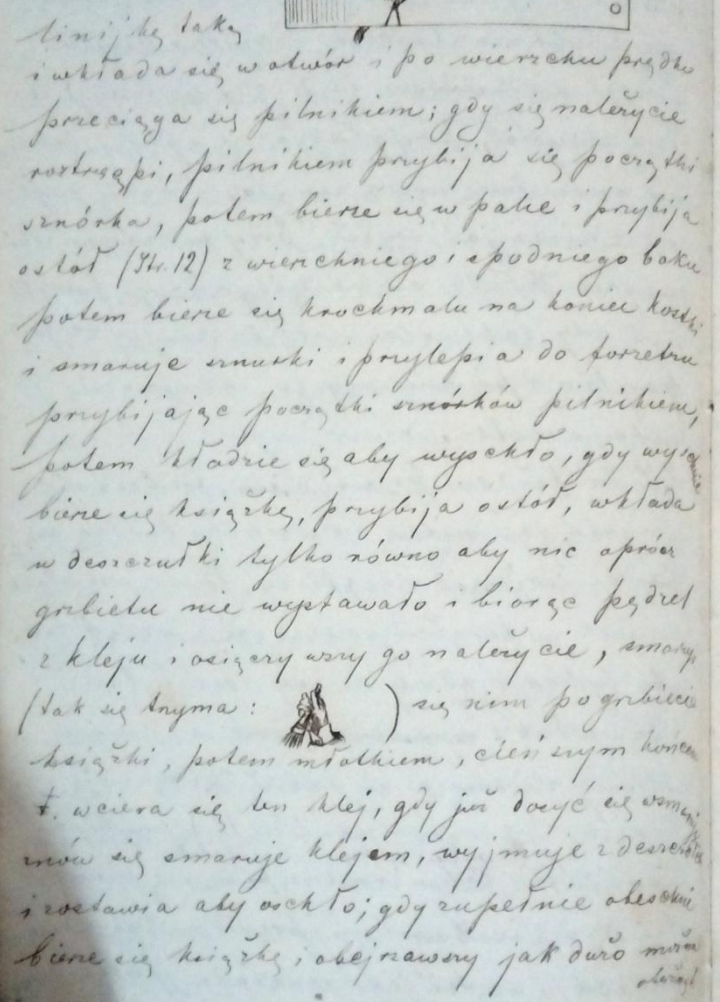 linijkę taką
i wkłada się w otwór i po wierzchu prędko
przeciąga się pilnikiem; gdy się należycie
roztrzępi, pilnikiem przybija się początki
sznórka, potem bierze się w palce i przybija
ostół (Str. 12) z wierzchniego i spodniego boku
potem bierze się krochmalu na koniec kostki
i smaruje sznurki i przylepia do forzetzu
przybijając początki sznórków pilnikiem,
potem kładzie się aby wyschło, gdy wyschnie
bierze się książkę, przybija ostół, wkłada
w deszczułki tylko równo aby nic oprócz
grzbietu nie wystawało i biorąc pędzel
z kleju i osięczywszy go należycie, smaruje
(tak się trzyma: ) się nim po grzbiecie
książki, potem młotkiem, cieńszym końcem
t. wciera się ten klej, gdy już dosyć się
znów się smaruje klejem, wyjmuje z
i zostawia aby oschło; gdy zupełnie obeschnie
bierze się książkę i obejrzawszy jak dużo można
oberżnąć